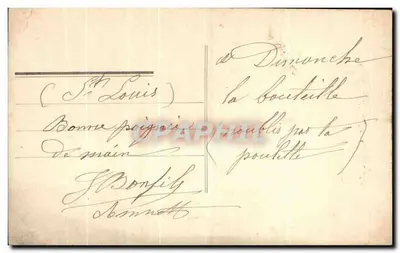 (St Louis)
Bonne poignée
de main
J. Bonfils
à Dimanche
la bouteille
(n'oublie pas ta
poulette)